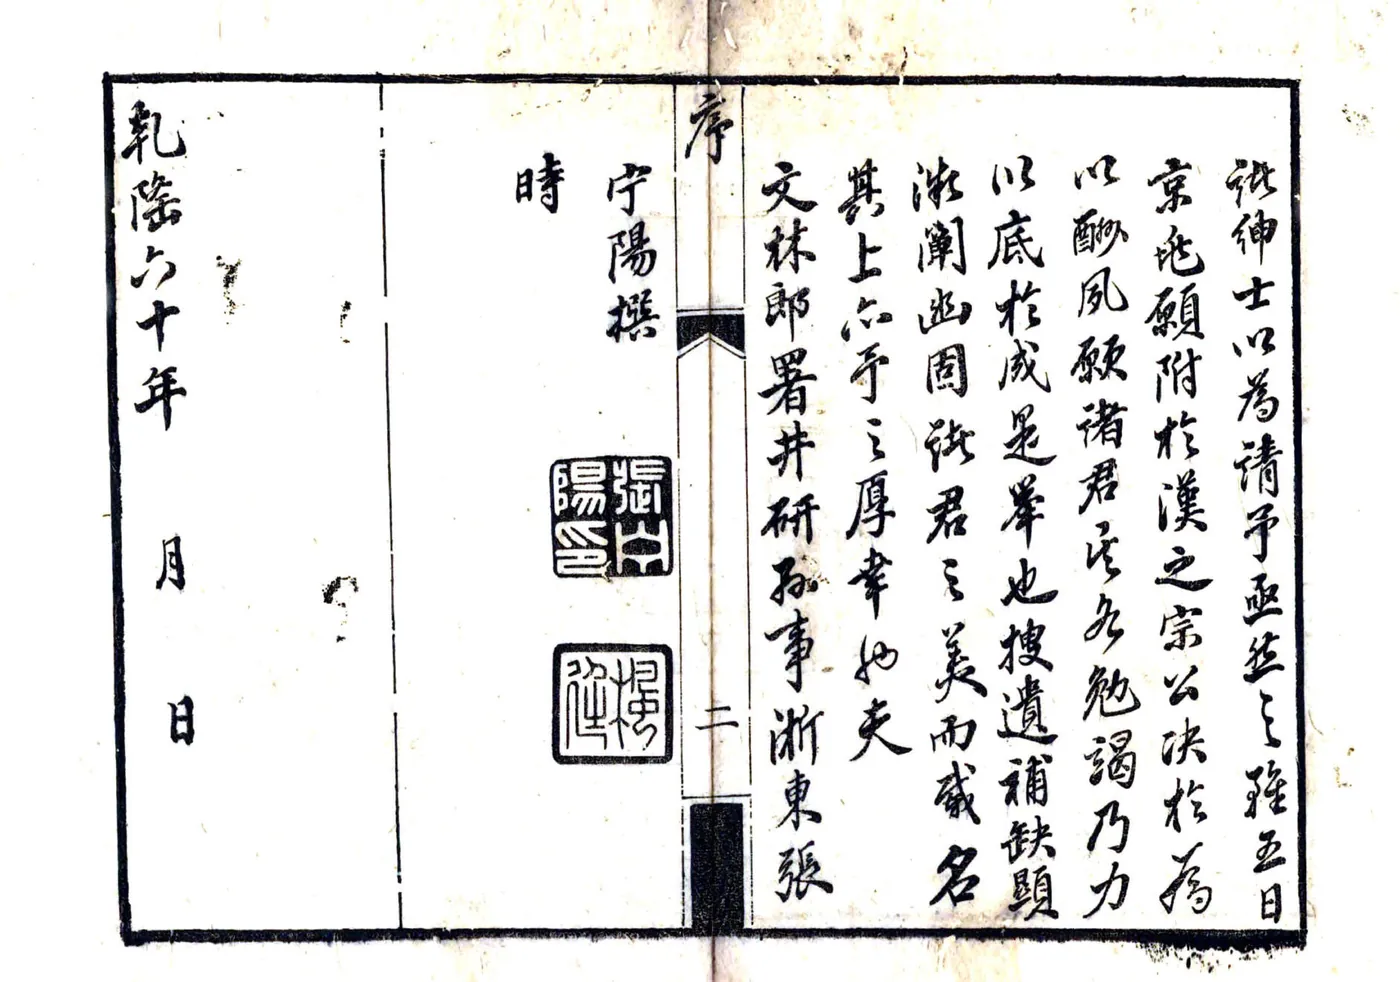 諸紳士以為請予亟然之雖五日
京兆願附於漢之宗公决於為
以酬夙願諸君其各勉謁乃力
以底於成是舉也搜遺補缺顯
微闡幽固諸君之美而咸名
其上亦予之厚幸也夫
文林郎署井研縣事浙東張
序
二
宁陽撰
張宁陽印
時
乾隆六十年 月 日